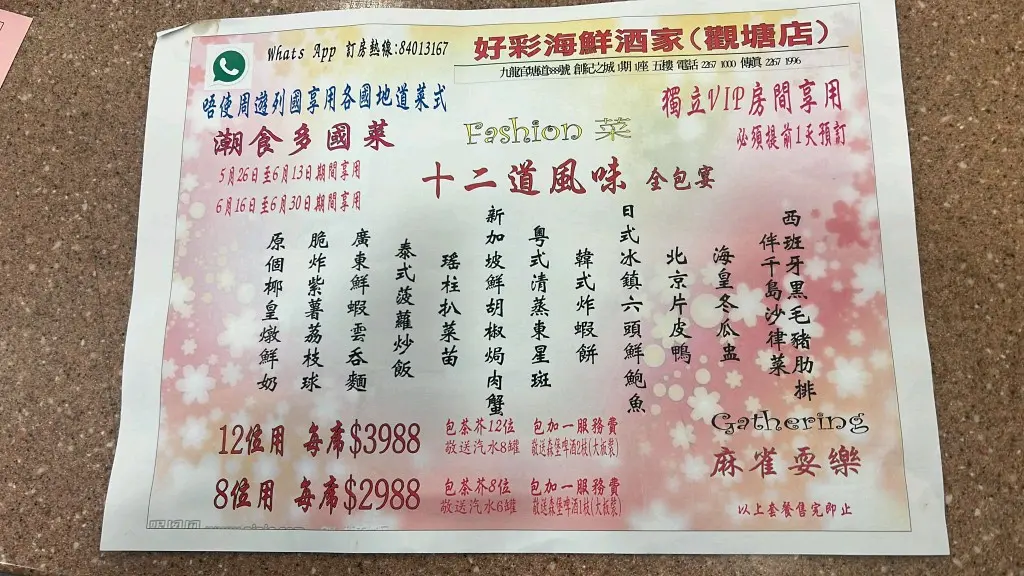 Whats App 訂房熱線:84013167
好彩海鮮酒家(觀塘店)
九龍官塘道388號 創紀之城1期1座 五樓 電話 2267 1000 傳真 2267 1996
唔使周遊列國享用各國地道菜式
獨立VIP房間享用
必須提前1天預訂
潮食多國菜
Fashion 菜
5月26日至6月13日期間享用
6月16日至6月30日期間享用
十二道風味 全包宴
西班牙黑毛豬肋排
伴千島沙律菜
海皇冬瓜盅
北京片皮鴨
日式冰鎮六頭鮮鮑魚
韓式炸蝦餅
粵式清蒸東星斑
新加坡鮮胡椒焗肉蟹
瑤柱扒菜苗
泰式菠蘿炒飯
廣東鮮蝦雲吞麵
脆炸紫薯荔枝球
原個椰皇燉鮮奶
12位用 每席$3988
包茶芥12位
敬送汽水8罐
包加一服務費
敬送森堡啤酒2枝(大瓶裝)
8位用 每席$2988
包茶芥8位
敬送汽水6罐
包加一服務費
敬送森堡啤酒1枝(大瓶裝)
Gathering
麻雀耍樂
以上套餐售完即止